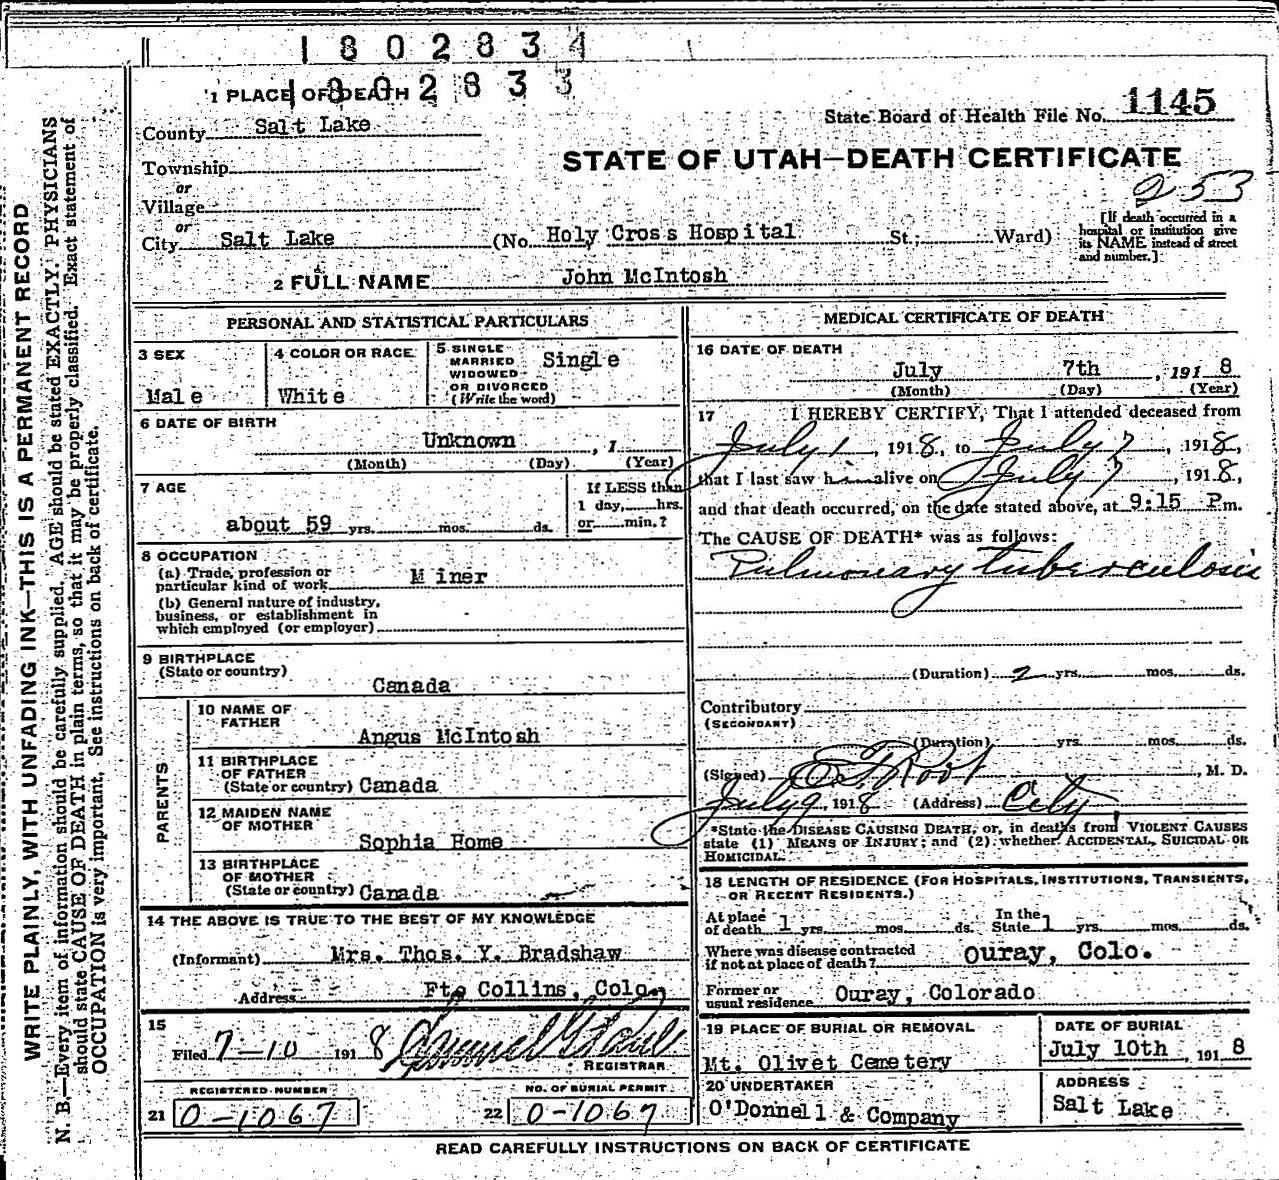 1802834
1802833
1 PLACE OF DEATH
County Salt Lake
Township
or
Village
or
City Salt Lake (No. Holy Cross Hospital St.; Ward)
[If death occurred in a
hospital or institution give
its NAME instead of street
and number.]
State Board of Health File No. 1145
STATE OF UTAH—DEATH CERTIFICATE
253
2 FULL NAME John McIntosh
PERSONAL AND STATISTICAL PARTICULARS
3 SEX
Male
4 COLOR OR RACE
White
5 SINGLE
MARRIED
WIDOWED
OR DIVORCED
(Write the word)
Single
6 DATE OF BIRTH
Unknown , 1
(Month) (Day) (Year)
7 AGE
about 59 yrs. mos. ds.
If LESS than
1 day, hrs.
or min.?
8 OCCUPATION
(a) Trade, profession or
particular kind of work Miner
(b) General nature of industry,
business, or establishment in
which employed (or employer)
9 BIRTHPLACE
(State or country)
Canada
PARENTS
10 NAME OF
FATHER
Angus McIntosh
11 BIRTHPLACE
OF FATHER
(State or country) Canada
12 MAIDEN NAME
OF MOTHER
Sophia Home
13 BIRTHPLACE
OF MOTHER
(State or country) Canada
14 THE ABOVE IS TRUE TO THE BEST OF MY KNOWLEDGE
(Informant) Mrs. Thos. Y. Bradshaw
Address Ft. Collins, Colo.
15
Filed 7-10 1918
REGISTRAR
REGISTERED NUMBER
21 0-1067
NO. OF BURIAL PERMIT
22 0-1067
MEDICAL CERTIFICATE OF DEATH
16 DATE OF DEATH
July 7th , 1918
(Month) (Day) (Year)
17 I HEREBY CERTIFY, That I attended deceased from
July 1 , 1918, to July 7 , 1918,
that I last saw him alive on July 7 , 1918,
and that death occurred, on the date stated above, at 9:15 P m.
The CAUSE OF DEATH* was as follows:
Pulmonary tuberculosis
(Duration) 2 yrs. mos. ds.
Contributory
(SECONDARY)
(Duration) yrs. mos. ds.
(Signed) Root , M. D.
July 9, 1918 (Address) City
*State the DISEASE CAUSING DEATH, or, in deaths from VIOLENT CAUSES
state (1) MEANS OF INJURY; and (2) whether ACCIDENTAL, SUICIDAL OR
HOMICIDAL.
18 LENGTH OF RESIDENCE (FOR HOSPITALS, INSTITUTIONS, TRANSIENTS,
OR RECENT RESIDENTS.)
At place
of death 1 yrs. mos. ds. In the
State 1 yrs. mos. ds.
Where was disease contracted
if not at place of death? Ouray, Colo.
Former or
usual residence Ouray, Colorado
19 PLACE OF BURIAL OR REMOVAL
Mt. Olivet Cemetery
DATE OF BURIAL
July 10th , 1918
20 UNDERTAKER
O'Donnell & Company
ADDRESS
Salt Lake
READ CAREFULLY INSTRUCTIONS ON BACK OF CERTIFICATE
WRITE PLAINLY, WITH UNFADING INK—THIS IS A PERMANENT RECORD
N. B.—Every item of information should be carefully supplied. AGE should be stated EXACTLY. PHYSICIANS
should state CAUSE OF DEATH in plain terms, so that it may be properly classified. Exact statement of
OCCUPATION is very important. See instructions on back of certificate.